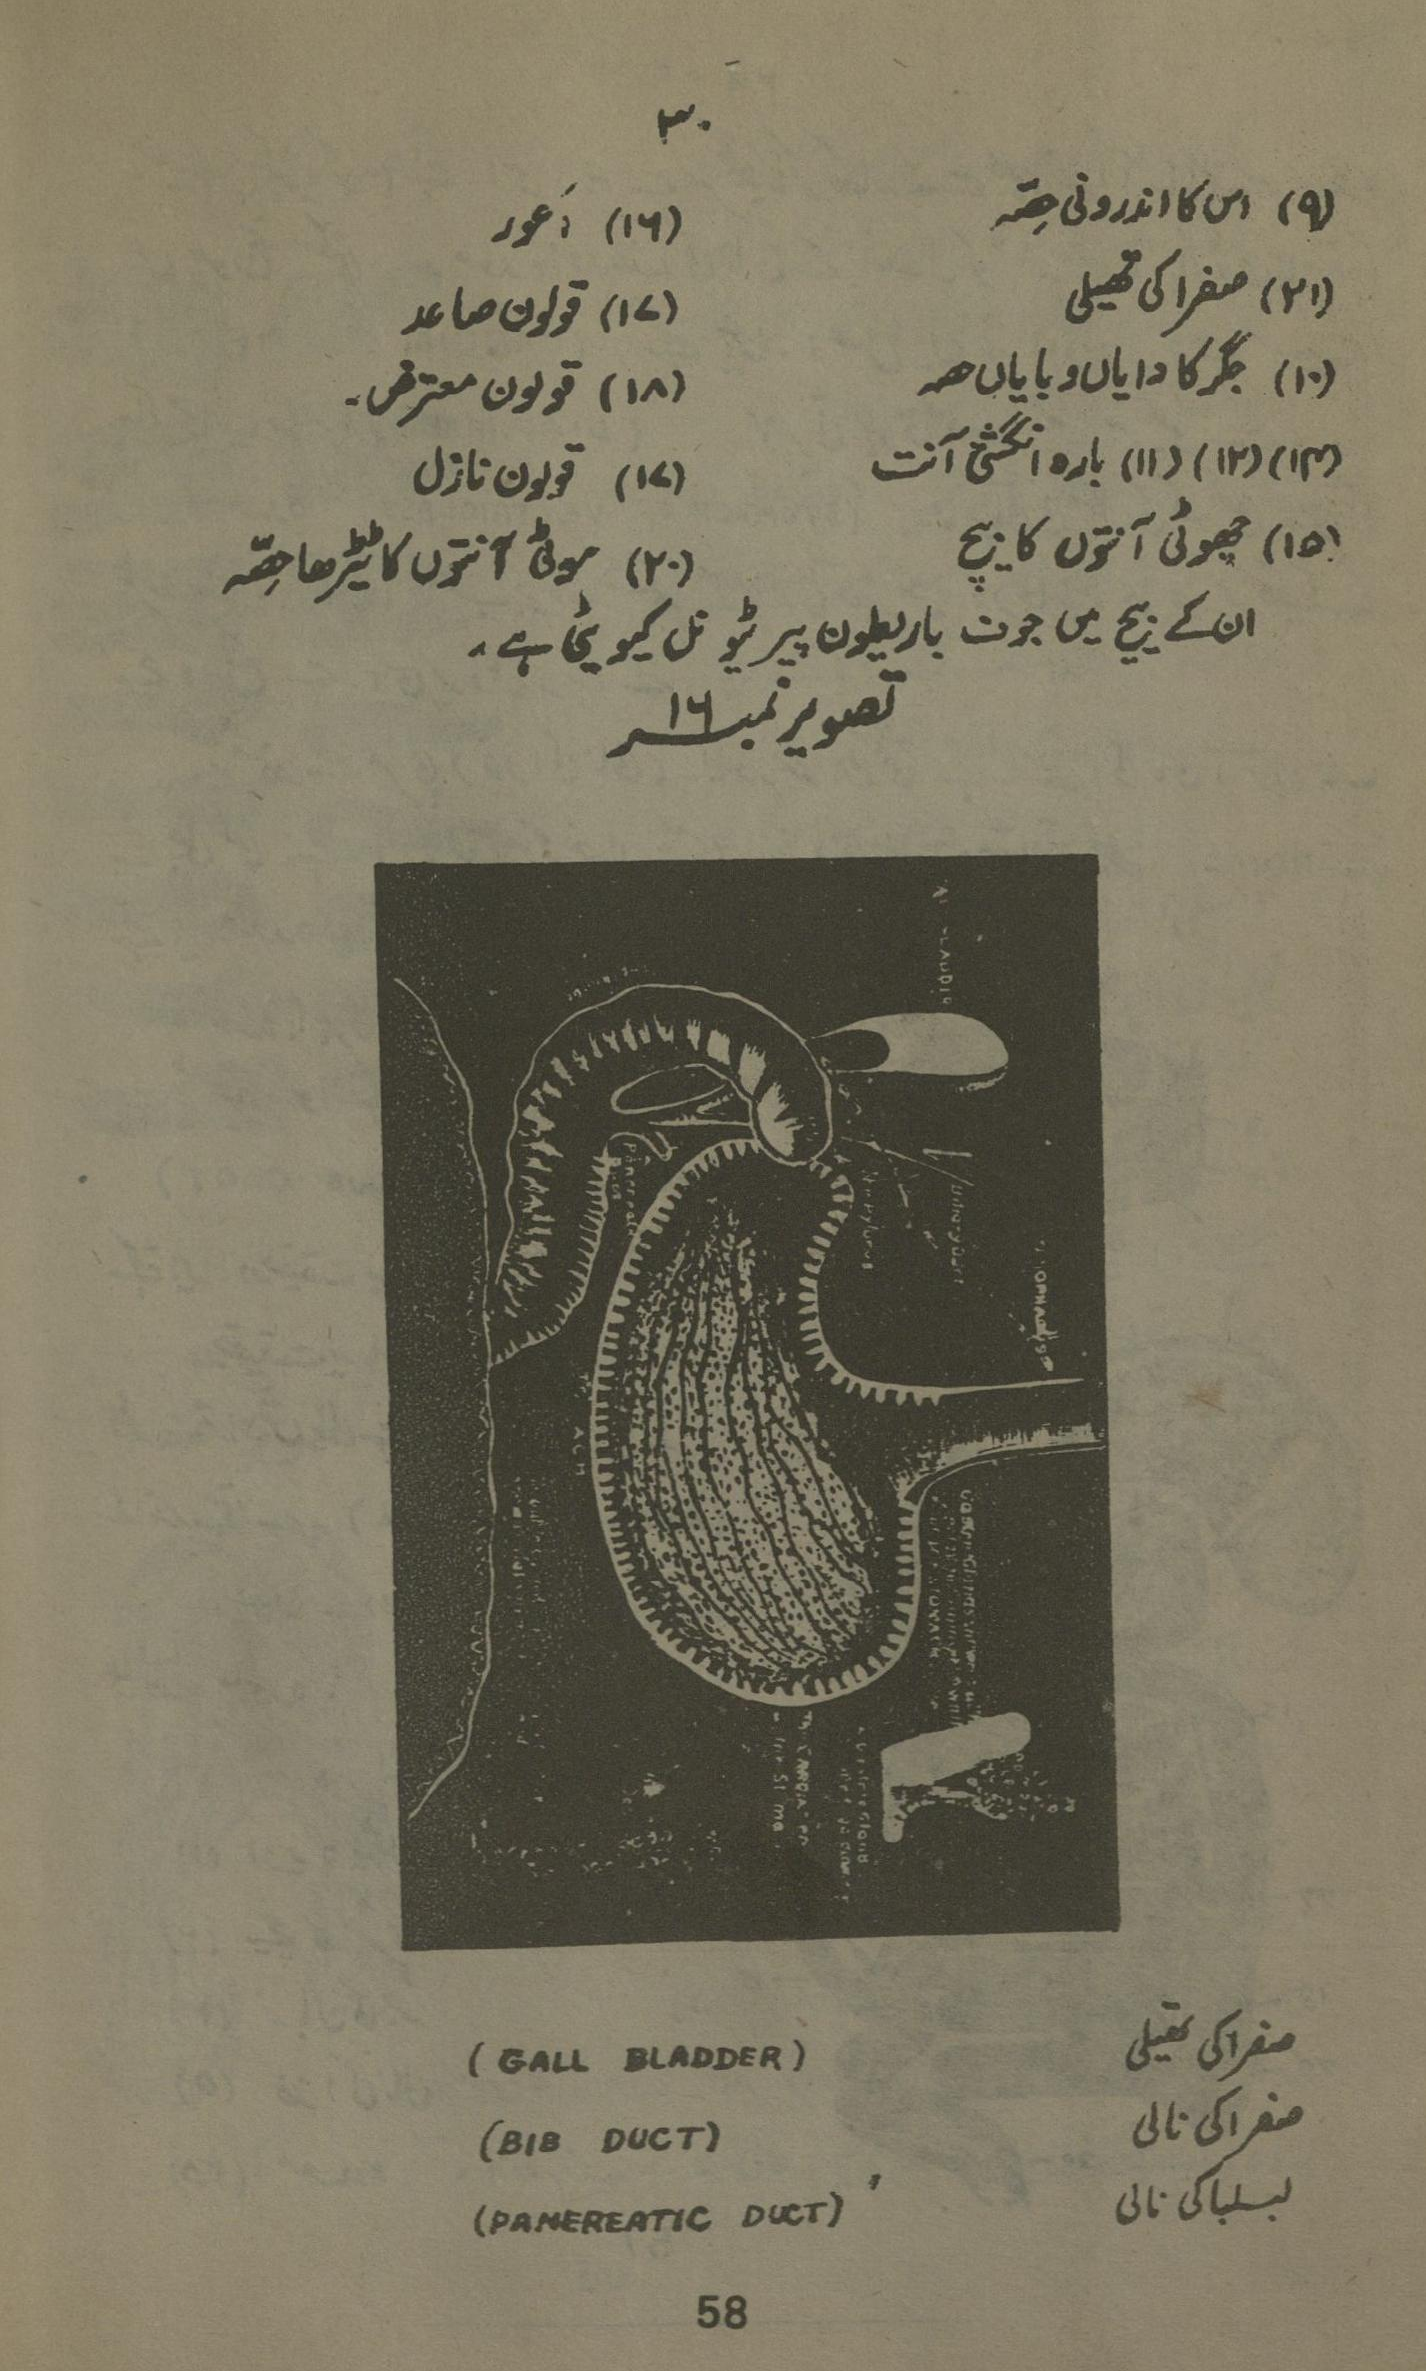 ۳۰
(۹) اس کا اندرونی حصّہ
(۲۱) صفرا کی تھیلی
(۱۰) جگر کا دایاں و بایاں حصہ
(۱۳) (۱۲) (۱۱) بارہ انگشتی آنت
(۱۵) چھوٹی آنتوں کا پیچ
(۱۶) اَعور
(۱۷) قولون صاعد
(۱۸) قولون معترض۔
(۱۷) قولون نازل
(۲۰) موٹی آنتوں کا ٹیڑھا حصّہ
ان کے بیچ میں جوف باریطون پیر ٹیو نل کیویٹی ہے۔
تصویر نمبر ۱۶
صفرا کی تھیلی (GALL BLADDER)
صفرا کی نالی (BIB DUCT)
لبلبا کی نالی (PANEREATIC DUCT)
58